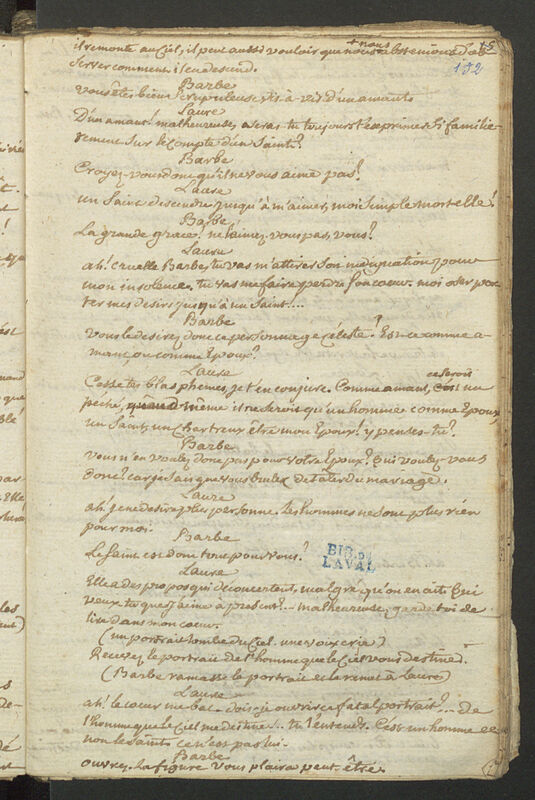 15
152
il remonte au Ciel, il peut aussi vouloir que nous
+ nous
server comment il en descend.
Barbe
vous êtes bien scrupuleuse vis-à-vis d'un amant.
Laure
D'un amant! malheureuse, oseras-tu toujours t'exprimer si familie-
rement sur le compte d'un Saint?
Barbe
Croyez-vous donc qu'il ne vous aime pas?
Laure
un Saint descendre jusqu'à m'aimer, moi simple mortelle!
Barbe
La grande grace! ne l'aimez vous pas, vous?
Laure
ah! cruelle Barbe, tu vas m'attirer son indignation pour
mon insolence. tu vas me faire perdre son coeur. moi oser por-
ter mes desirs jusqu'à un Saint!...
Barbe
vous le desirez donc ce personnage céleste? Est-ce comme a-
mant, ou comme Epoux?
Laure
Cesse tes blasphemes, je t'en conjure. Comme amant, ce seroit un
péché, quand même il ne seroit qu'un homme comme Epoux,
un Saint, un Chartreux être mon Epoux! y penses-tu?
Barbe
vous n'en voulez donc pas pour votre Epoux? Qui voulez-vous
donc? car je sais que vous brulez de tâter du mariage.
Laure
ah! je ne desire plus personne. Les hommes ne sont plus rien
pour moi.
Barbe
Le Saint est donc tout pour vous?
Laure
Elle a des propos qui déconcertent, malgré qu'on en ait. Qui
veux-tu que j'aime à present?... malheureuse, garde toi de
lire dans mon coeur.
(un portrait tombe du Ciel. une voix crie)
Recevez le portrait de l'homme que le Ciel vous destine.
(Barbe ramasse le portrait et le remet à Laure)
Laure
ah! le coeur me bat. dois-je ouvrir ce fatal portrait?... De
l'homme que le Ciel me destine... tu l'entends. C'est un homme et
non le Saint. ce n'est pas lui.
Barbe
ouvrez. La figure vous plaira peut-être.
BIB. DE
LAVAL